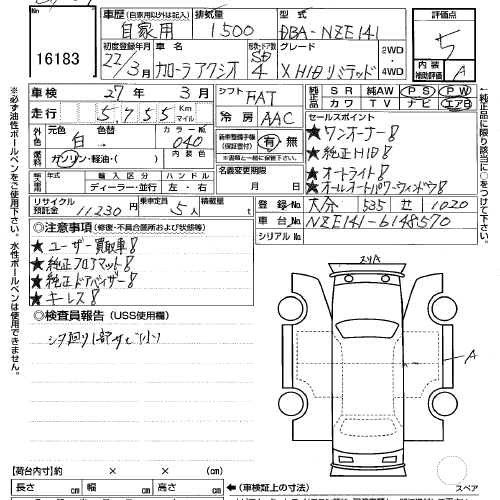 16183
車歴 (自家用以外は記入) 自家用
排気量 1500
型式 DBA-NZE141
評価点 5
内装補助評価 A
初度登録年月 22/3月
車名 カローラアクシオ
形状・ドア数 SD 4
グレード X HIDリミテッド
2WD
4WD
車検 27年 3月
シフト FAT
純正品 SR 純AW PS PW
カワ TV ナビ エアB
走行 5,755 Km マイル
冷房 AAC
セールスポイント
★ワンオーナー!
★純正HID!
★オートライト!
★オールオートパワーウィンドウ!
外色 元色 白 色替 カラー№ 040
新車整備手帳(保証書付) 有・無
※書類と一緒に保管して下さい。
燃料 ガソリン・軽油・( ) 内装色
名義変更期限 月 日
輸入車 年式 輸入区分 ディーラー・並行 ハンドル 左・右
リサイクル預託金 11230円
乗車定員 5人
積載量 t
登録№ 大分 535 せ 1020
車台№ NZE141-6148570
シリアル№
◎注意事項 (修復・不具合箇所および状態等)
★ユーザー買取車!
★純正フロアマット!
★純正ドアバイザー!
★キーレス!
◎検査員報告 (USS使用欄)
シタ廻り1部サビ小
スリA
A
スペア
【荷台内寸】約 × × (cm)
←(車検証上の寸法)
長さ cm 幅 cm 高さ cm
※必ず油性ボールペンをご使用下さい。水性ボールペンは使用できません。
↑純正品に限り該当に○をつけて下さい